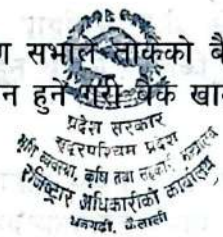 ण सभाले तोकेको बै
न हुने गरी बैंक खा
प्रदेश सरकार
सुदूरपश्चिम प्रदेश
भूमि व्यवस्था, कृषि तथा सहकारी मन्त्रालय
रजिष्ट्रार अधिकारीको कार्यालय
धनगढी, कैलाली